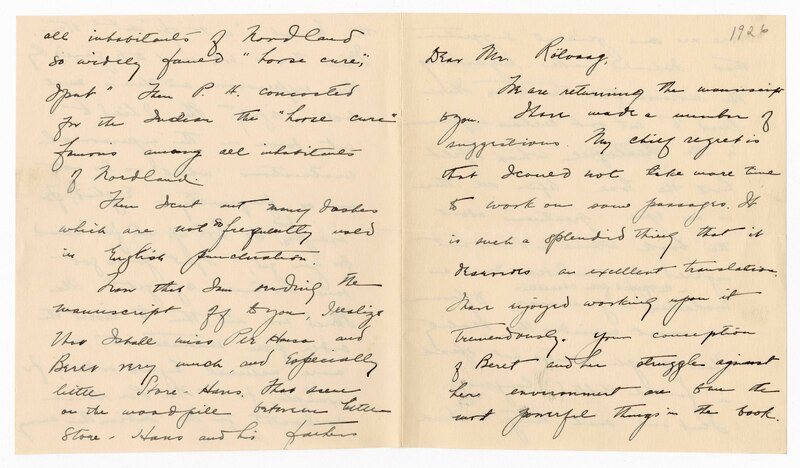 1926
Dear Mr. Rölvaag,
We are returning the manuscript
to you. I have made a number of
suggestions. My chief regret is
that I could not take more time
to work on some passages. It
is such a splendid thing that it
deserves an excellent translation.
I have enjoyed working upon it
tremendously. Your conception
of Beret and her struggles against
her environment are the
most powerful things in the book.
all inhabitants of Nordland
so widely famed "horse cure";
I put "Then P. H. concocted
for the Indian the "horse cure"
famous among all inhabitants
of Nordland.
Then I cut out many dashes
which are not so frequently used
in English punctuation.
Now that I am sending the
manuscript off to you, I realize
that I shall miss Per Hansa and
Beret very much, and especially
little Store-Hans. That scene
on the woodpile between little
Store-Hans and his father